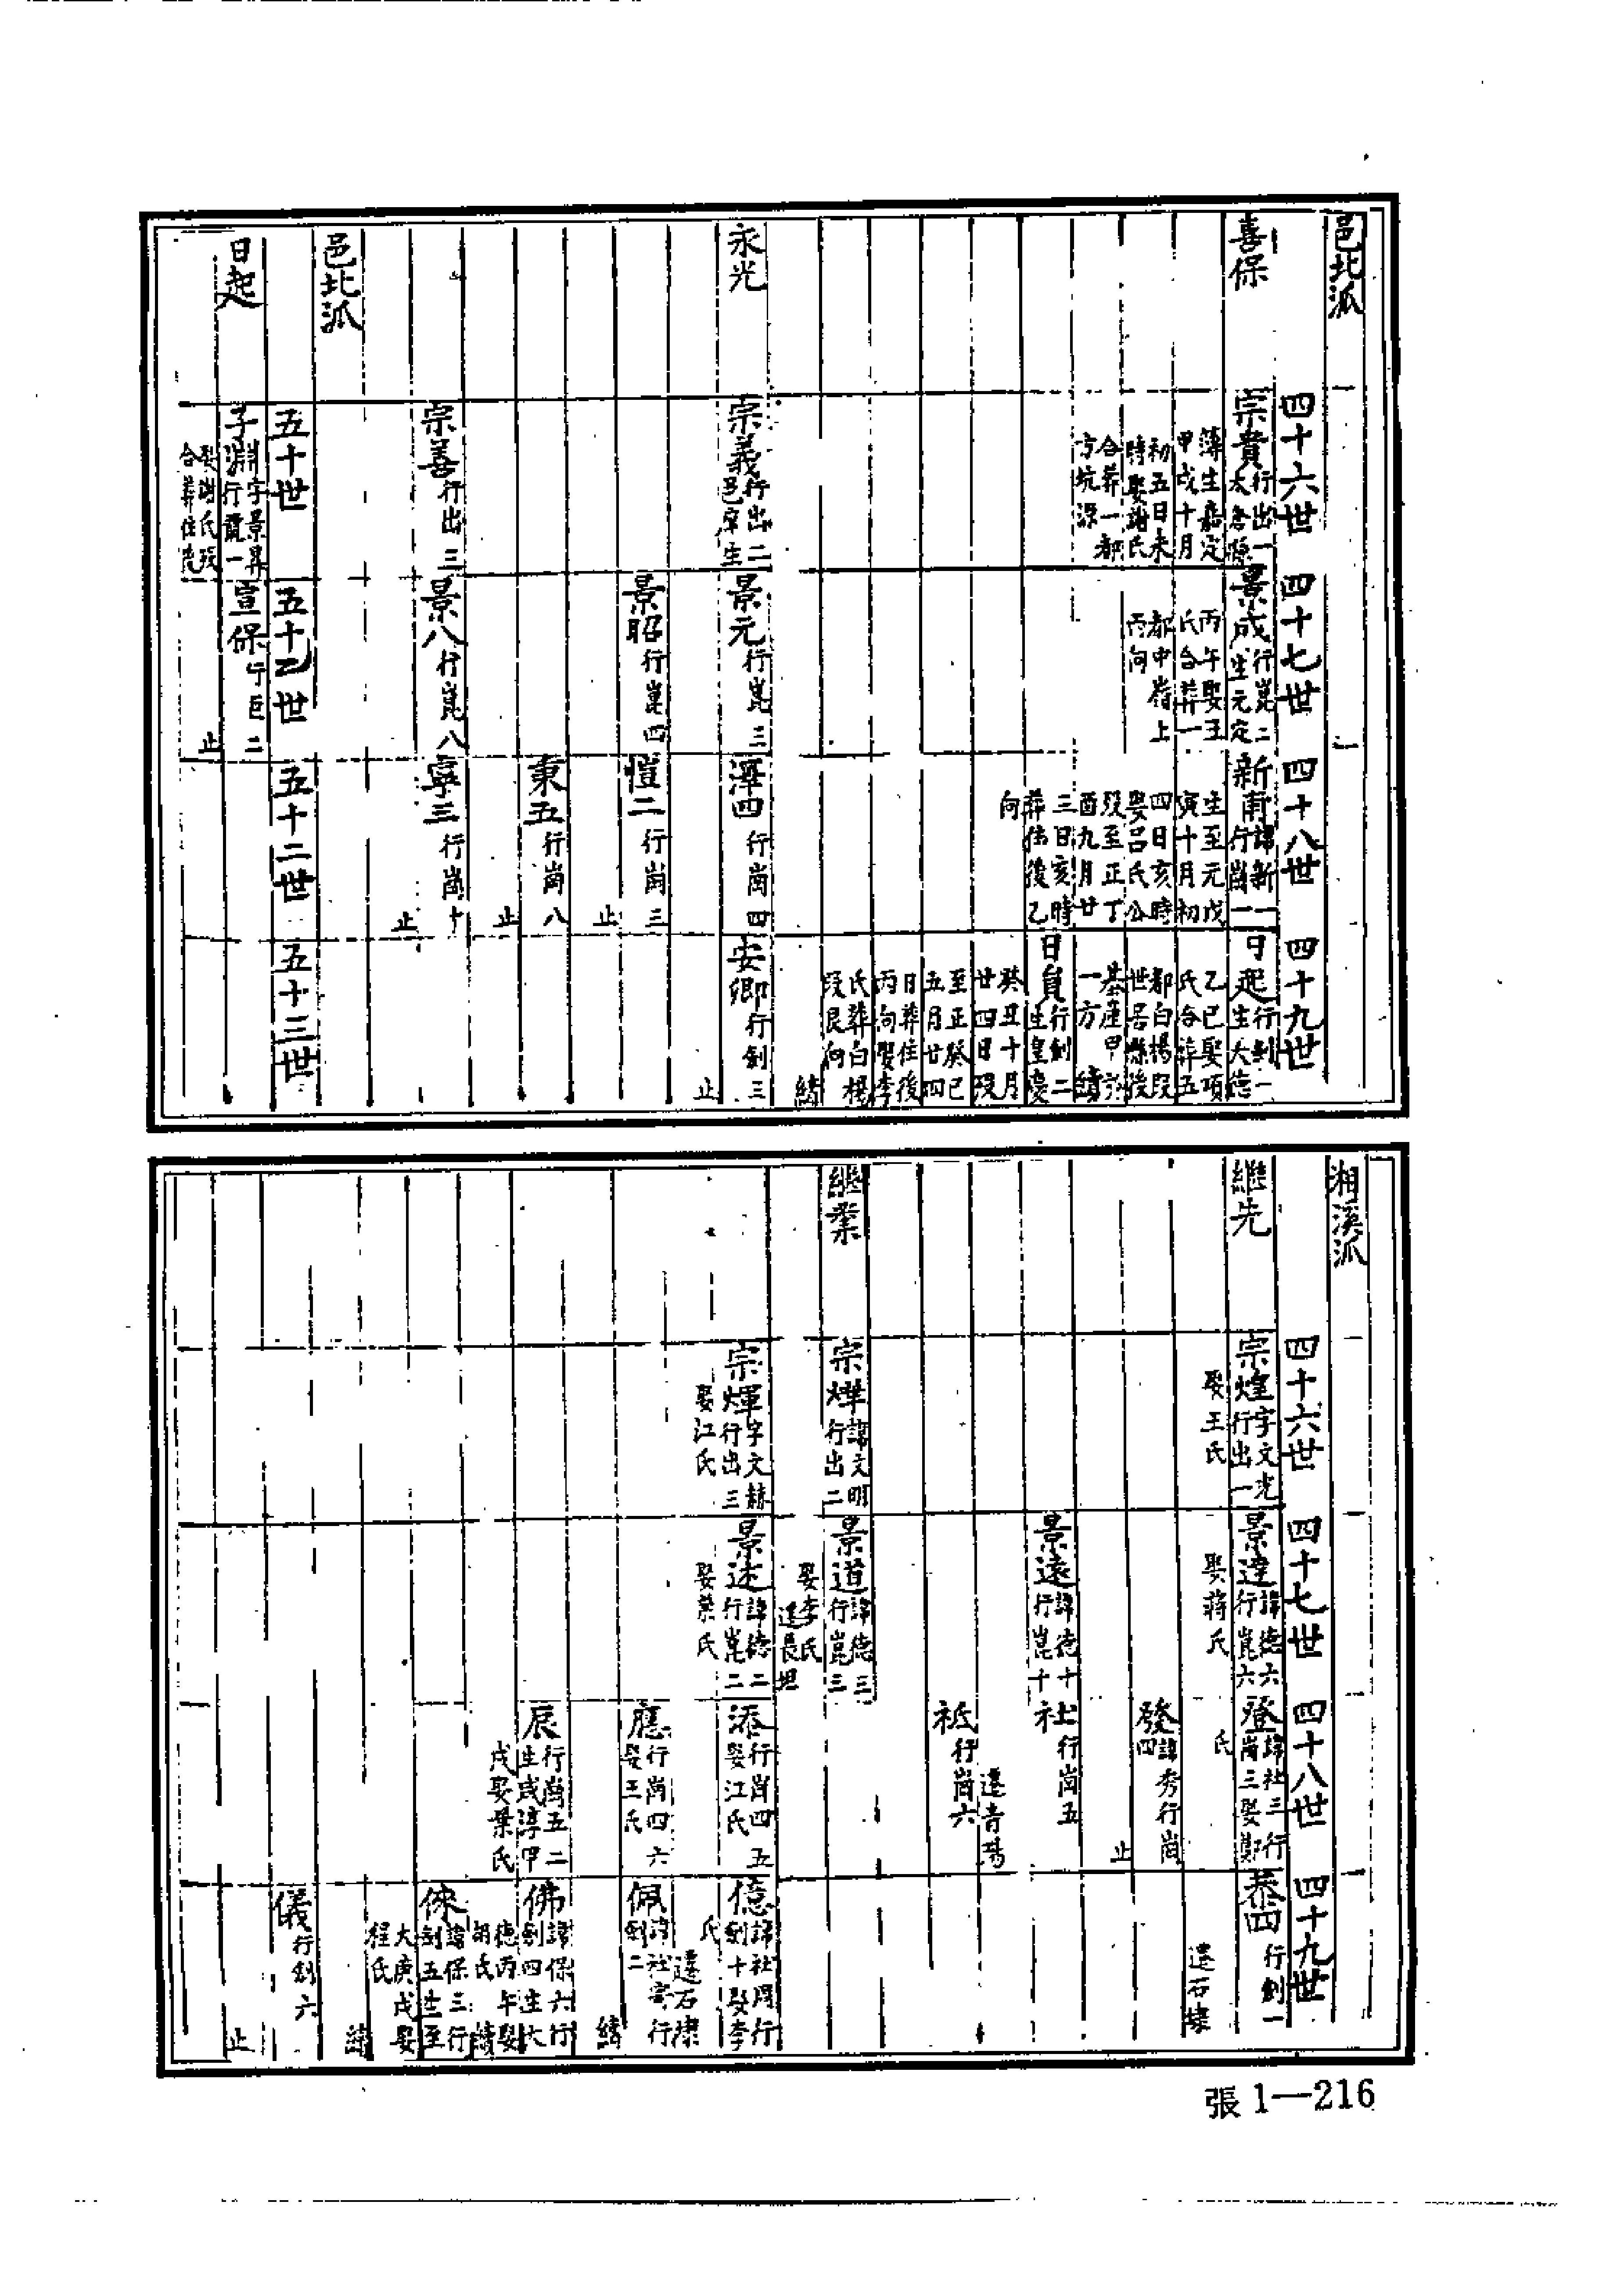 邑北派
四十六世 四十七世 四十八世 四十九世
喜保
宗貴 行出一
太倉
簿生嘉定
甲戌十月
初五日未
時娶謝氏
合葬一都
方坑源
景成 行崑二
生元定
丙午娶王
氏合葬一
都中嶺上
丙向
新甫 諱新一
行崗一
生至元戊
寅十月初
四日亥時
娶呂氏公
歿至正丁
酉九月廿
三日亥時
葬住後乙
向
日起 行釗一
生大德
乙巳娶項
氏合葬五
都白楊段
世居縣後
基產甲於
一方 續
日員 行釗二
生皇慶
癸丑十月
廿四日歿
至正癸巳
五月廿四
日葬住後
丙向娶李
氏葬白楊
段艮向
續
永光
宗義 行出二
邑庠生
景元 行崑三
澤四 行崗四
安卿 行釗三
止
景昭 行崑四
愷二 行崗三
止
東五 行崗八
止
宗善 行出三
景八 行崑八
寧三 行崗十
止
邑北派
五十世 五十乙世 五十二世 五十三世
日起
子淵 字景昇
行寶一
娶謝氏歿
合葬住
宣保 行巨二
止
湘溪派
四十六世 四十七世 四十八世 四十九世
繼先
宗煌 字文光
行出一
娶王氏
景達 諱德六
行崑六
娶蔣氏
登 諱社三行
崗三娶鄭
氏
泰四 行釗一
遷石埭
發 諱秀行崗
四
止
景遠 諱德十
行崑十
社 行崗五
祗 行崗六
遷青陽
繼業
宗燁 諱文明
行出二
景道 諱德三
行崑三
娶李氏
遷長坦
宗煇 字文赫
行出三
娶江氏
景述 諱德二
行崑二
娶葉氏
添 行崗四五
娶江氏
億 諱社周行
釗十娶李
氏
遷石埭
應 行崗四六
娶王氏
佩 諱社寄行
釗二
續
辰 行崗五二
生咸淳甲
戌娶葉氏
佛 諱保六行
釗四生大
德丙午娶
胡氏 續
倈 諱保三行
釗五生至
大庚戌娶
程氏
續
儀 行釗六
止
張1—216